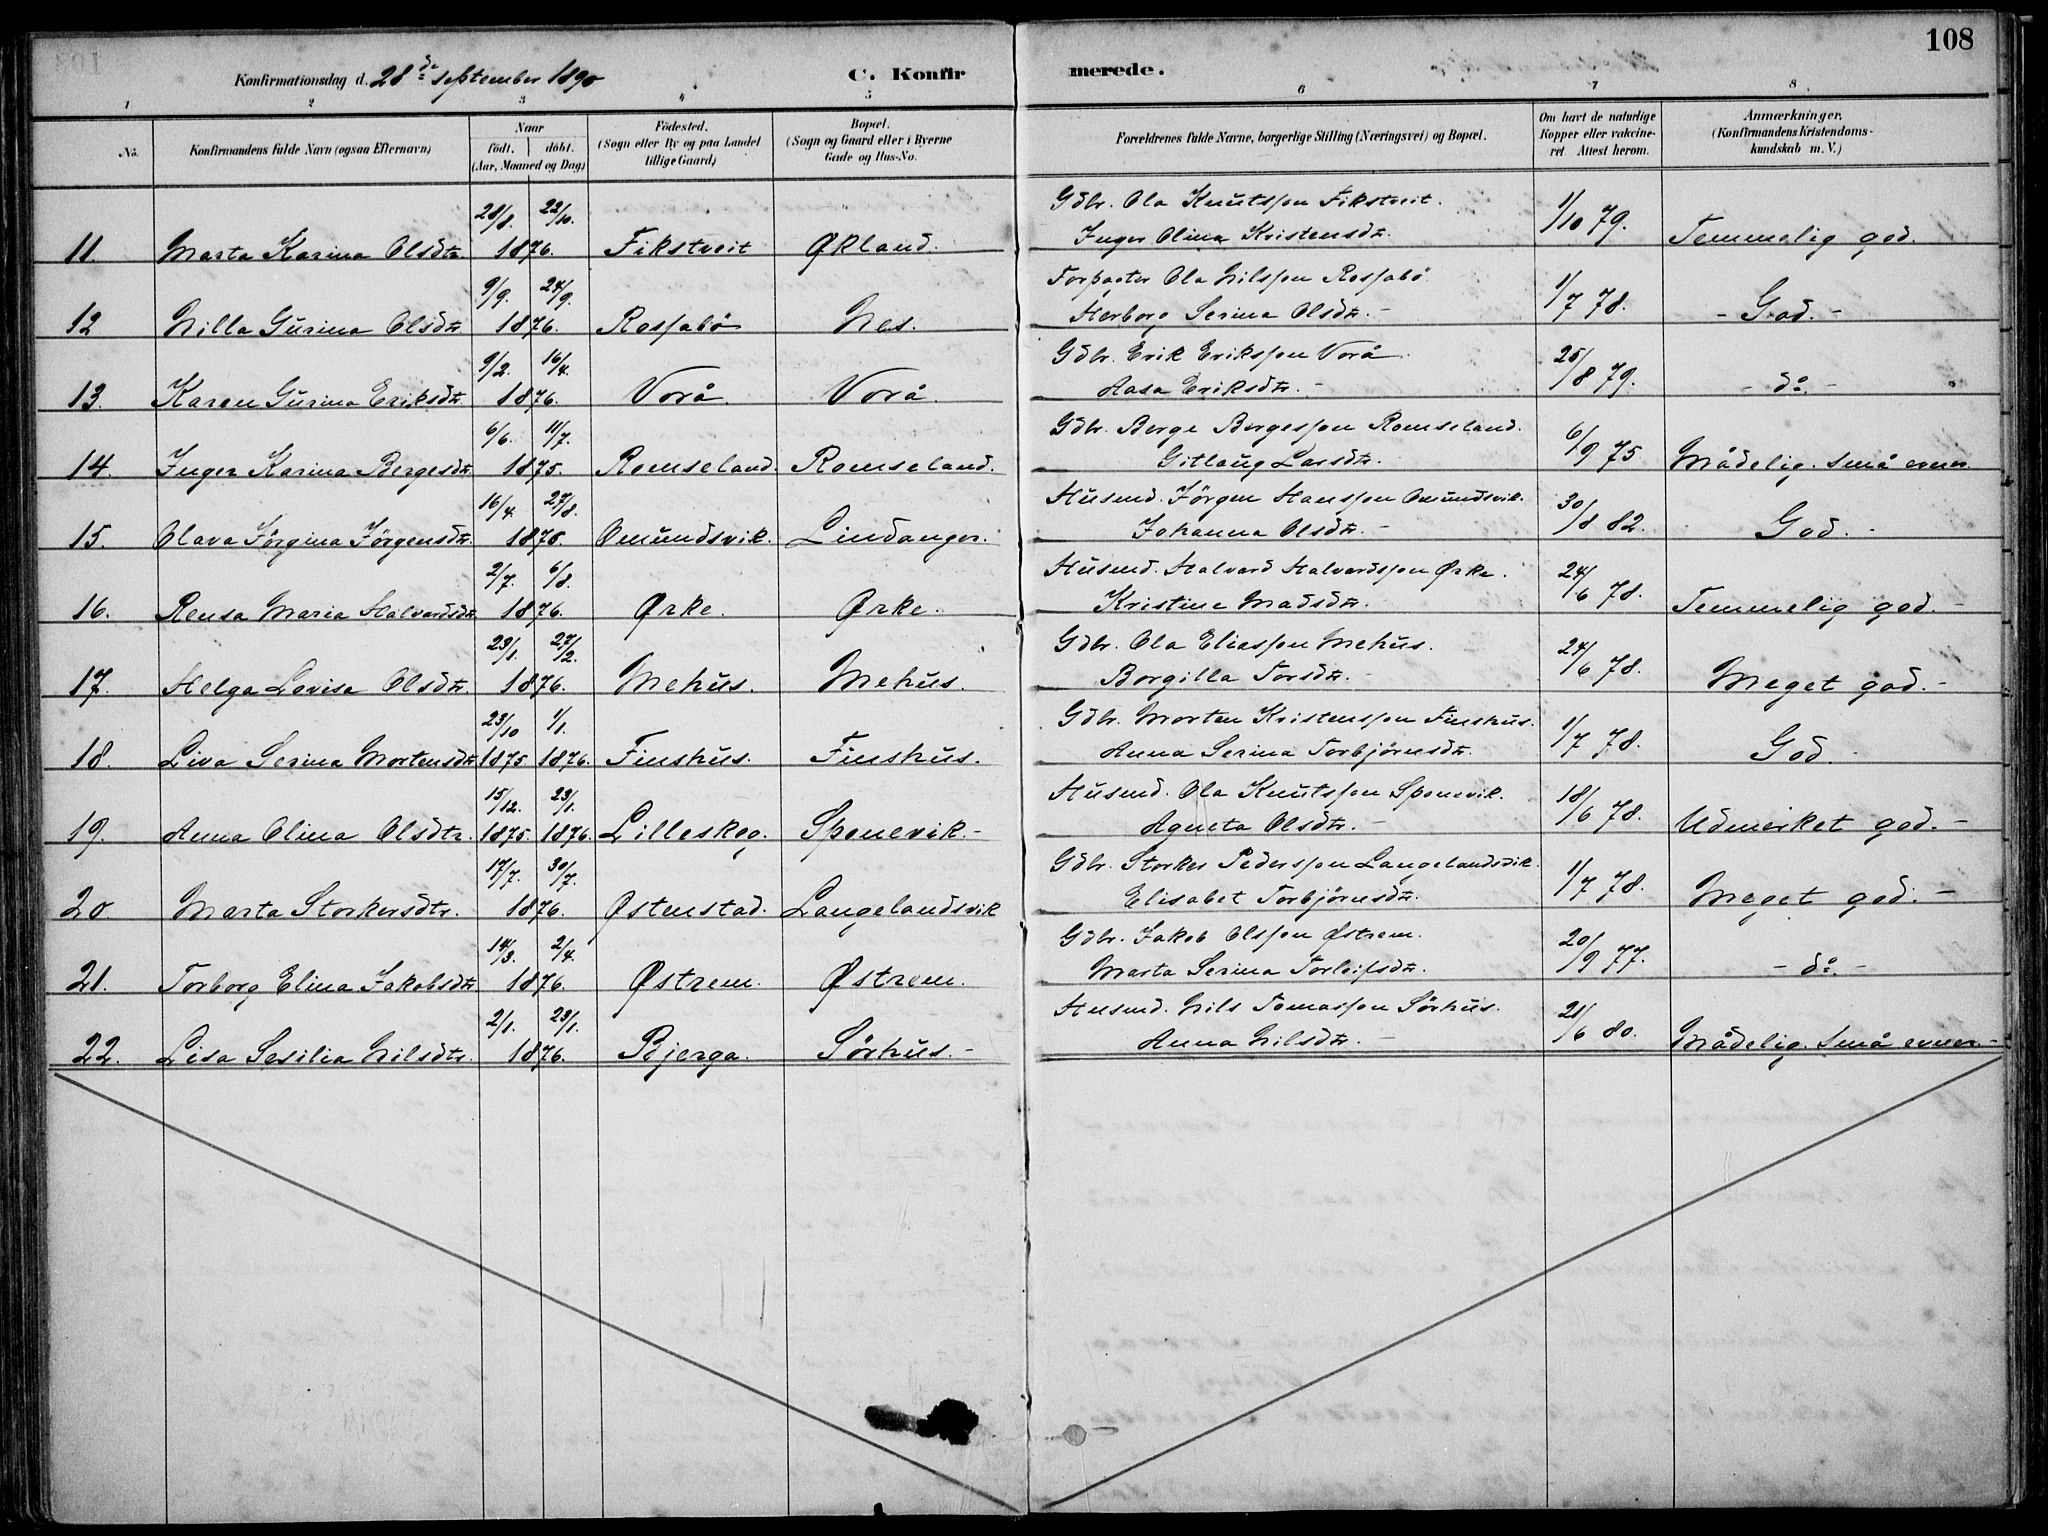 108
Konfirmationsdag d. 28de september 1890
C. Konfir merede.
1 2 3 " 5 6 7 8
No. Konfirmandens fulde Navn (ogsaa Efternavn) Naar födt. döbt. (Aar, Maaned og Dag) Födested. (Sogn eller By og paa Landet tillige Gaard) Bopæl. (Sogn og Gaard eller i Byerne Gade og Hus-No. Forældrenes fulde Navne, borgerlige Stilling (Næringsvei) og Bopæl. Om havt de naturlige Kopper eller vakcineret. Attest herom. Anmærkninger. (Konfirmandens Kristendomskundskab m. V.)
28/8. 22/10. Gdbr. Ola Knutsson Fikstveit.
11. Marta Karina Olsdtr. 1876. Fikstveit Økland. Inger Olina Kristensdtr. 1/10 79. Temmelig god.
9/9. 24/9. Forpagter Ola Nilsson Rossabö
12 Nilla Gurina Olsdtr 1876. Rossabö Nes. Herborg Serina Olsdtr. - 1/7 78. - God. -
9/2. 16/4. Gdbr. Erik Eriksson Vorå.
13. Karen Gurina Eriksdtr 1876. Vorå. Vorå. Aasa Eriksdtr. - 25/8 79. - do. -
6/6. 11/7. Gdbr. Berge Bergesson Romseland.
14. Inger Karina Bergesdtr 1875. Romseland. Romseland. Gitlaug Larsdtr. - 6/9 75 Mådelig. små evner
16/4. 27/8. Husmd. Jörgen Hansson Omundsvik.
15. Olava Jörgina Jörgensdtr. 1876. Omundsvik. Lindanger. Johanna Olsdtr. - 30/8 82. God. -
2/7. 6/8. Husmd. Halvard Halvardsson Ørke.
16. Rensa Maria Halvardsdtr 1876. Ørke. Ørke. Kristine Madsdtr. 24/6 78. Temmelig god. -
23/1. 27/2. Gdbr. Ola Eliasson Mehus.
17. Helga Lovisa Olsdtr 1876. Mehus. Mehus. Borgilla Torsdtr. - 24/6 78. Meget god. -
23/10 1/1. Gdbr. Morten Kristensson Finshus.
18. Liva Serina Mortensdtr 1875 1876. Finshus. Finshus. Anna Serina Torbjörnsdtr. 1/7 78. God. -
15/12. 23/1. Husmd. Ola Knutsson Sponevik.
19. Anna Olina Olsdtr. 1875. 1876. Lilleskog. Sponevik. - Agneta Olsdtr. - 18/6 78. Udmerket god. -
17/7. 30/7. Gdbr. Storker Pedersson Langelandsvik.
20 Marta Storkersdtr. 1876. Østenstad. Langelandsvik Elisabet Torbjörnsdtr. 1/7 78. Meget god. -
14/3. 2/4. Gdbr. Jakob Olsson Østrem.
21. Torborg Elina Jakobsdtr 1876. Østrem. Østrem. Marta Serina Torleifsdtr. 20/9 77. - do. -
2/1. 23/1. Husmd. Nils Tomasson Sörhus.
22. Lisa Sesilia Nilsdtr. 1876. Bjerga. Sörhus. - Anna Nilsdtr. - 21/6 80. Mådelig. små evner. -